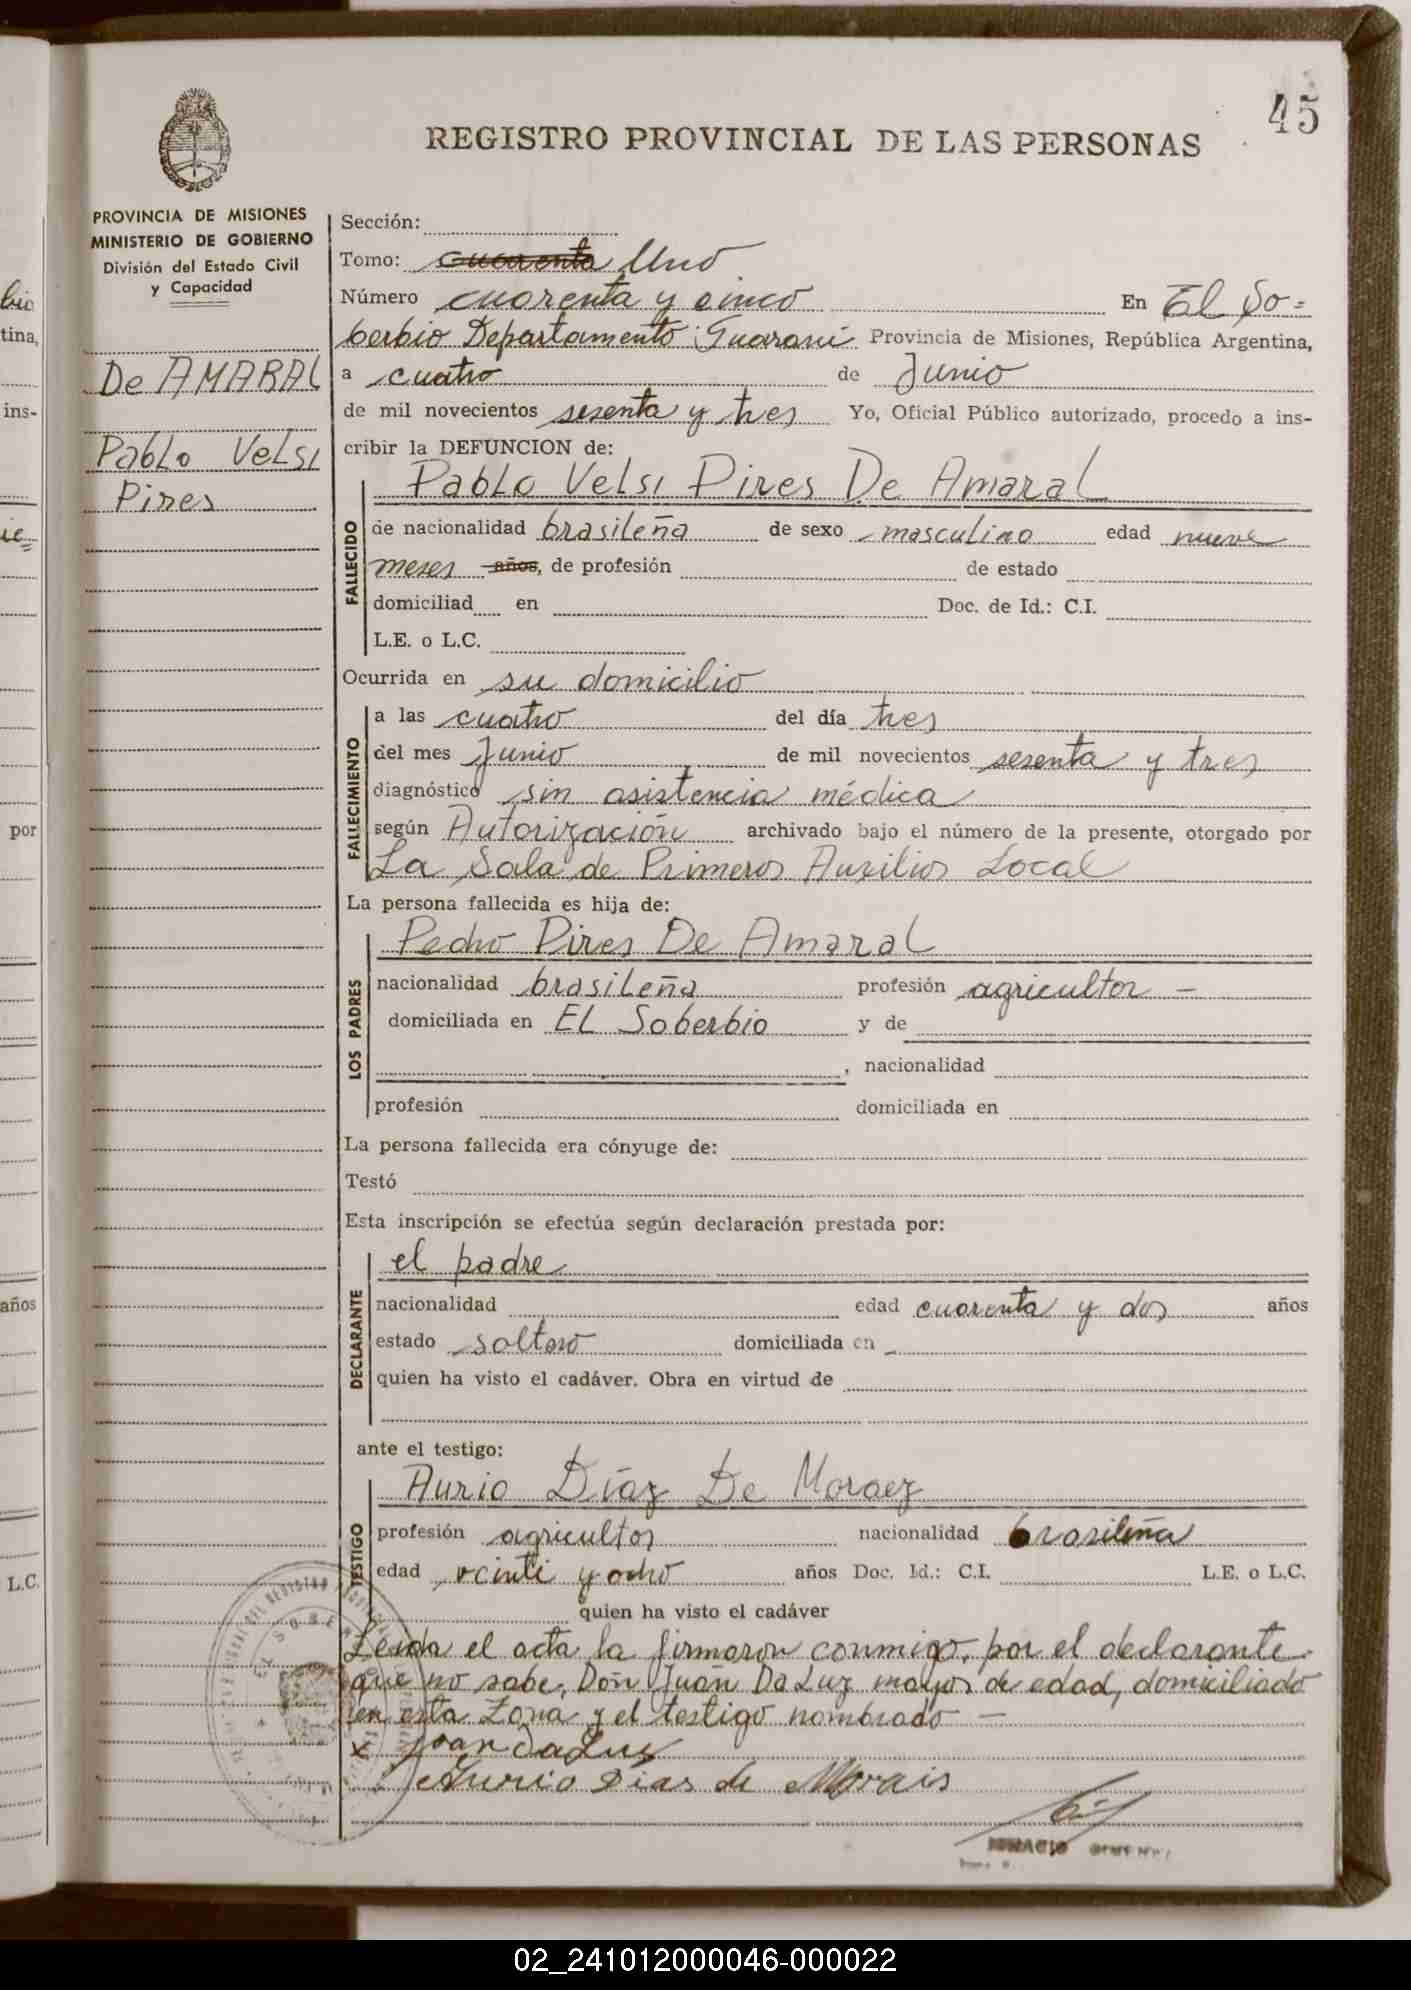 45
REGISTRO PROVINCIAL DE LAS PERSONAS
PROVINCIA DE MISIONES
MINISTERIO DE GOBIERNO
División del Estado Civil
y Capacidad
De AMARAL
Pablo Velsi
Pires
Sección:
Tomo: cuarenta Uno
Número cuarenta y cinco En El So=
berbio Departamento Guarani Provincia de Misiones, República Argentina,
a cuatro de Junio
de mil novecientos sesenta y tres Yo, Oficial Público autorizado, procedo a ins-
cribir la DEFUNCION de:
Pablo Velsi Pires De Amaral
FALLECIDO
de nacionalidad brasileña de sexo masculino edad nueve
meses años, de profesión de estado
domiciliad en Doc. de Id.: C.I.
L.E. o L.C.
Ocurrida en su domicilio
FALLECIMIENTO
a las cuatro del día tres
del mes Junio de mil novecientos sesenta y tres
diagnóstico sin asistencia médica
según Autorización archivado bajo el número de la presente, otorgado por
La Sala de Primeros Auxilios Local
La persona fallecida es hija de:
LOS PADRES
Pedro Pires De Amaral
nacionalidad brasileña profesión agricultor -
domiciliada en EL Soberbio y de
, nacionalidad
profesión domiciliada en
La persona fallecida era cónyuge de:
Testó
Esta inscripción se efectúa según declaración prestada por:
DECLARANTE
el padre
nacionalidad edad cuarenta y dos años
estado soltero domiciliada en
quien ha visto el cadáver. Obra en virtud de
ante el testigo:
TESTIGO
Aurio Díaz De Moraez
profesión agricultor nacionalidad brasileña
edad veinti y ocho años Doc. Id.: C.I. L.E. o L.C.
quien ha visto el cadáver
Leida el acta la firmaron conmigo, por el declarante
que no sabe, Don Juan Da Luz mayor de edad, domiciliado
en esta Zona y el testigo nombrado -
x Joan Da Luz
Aurio Dias de Morais
IGNACIO
bio
tina,
ins-
por
años
L.C.
02_241012000046-000022